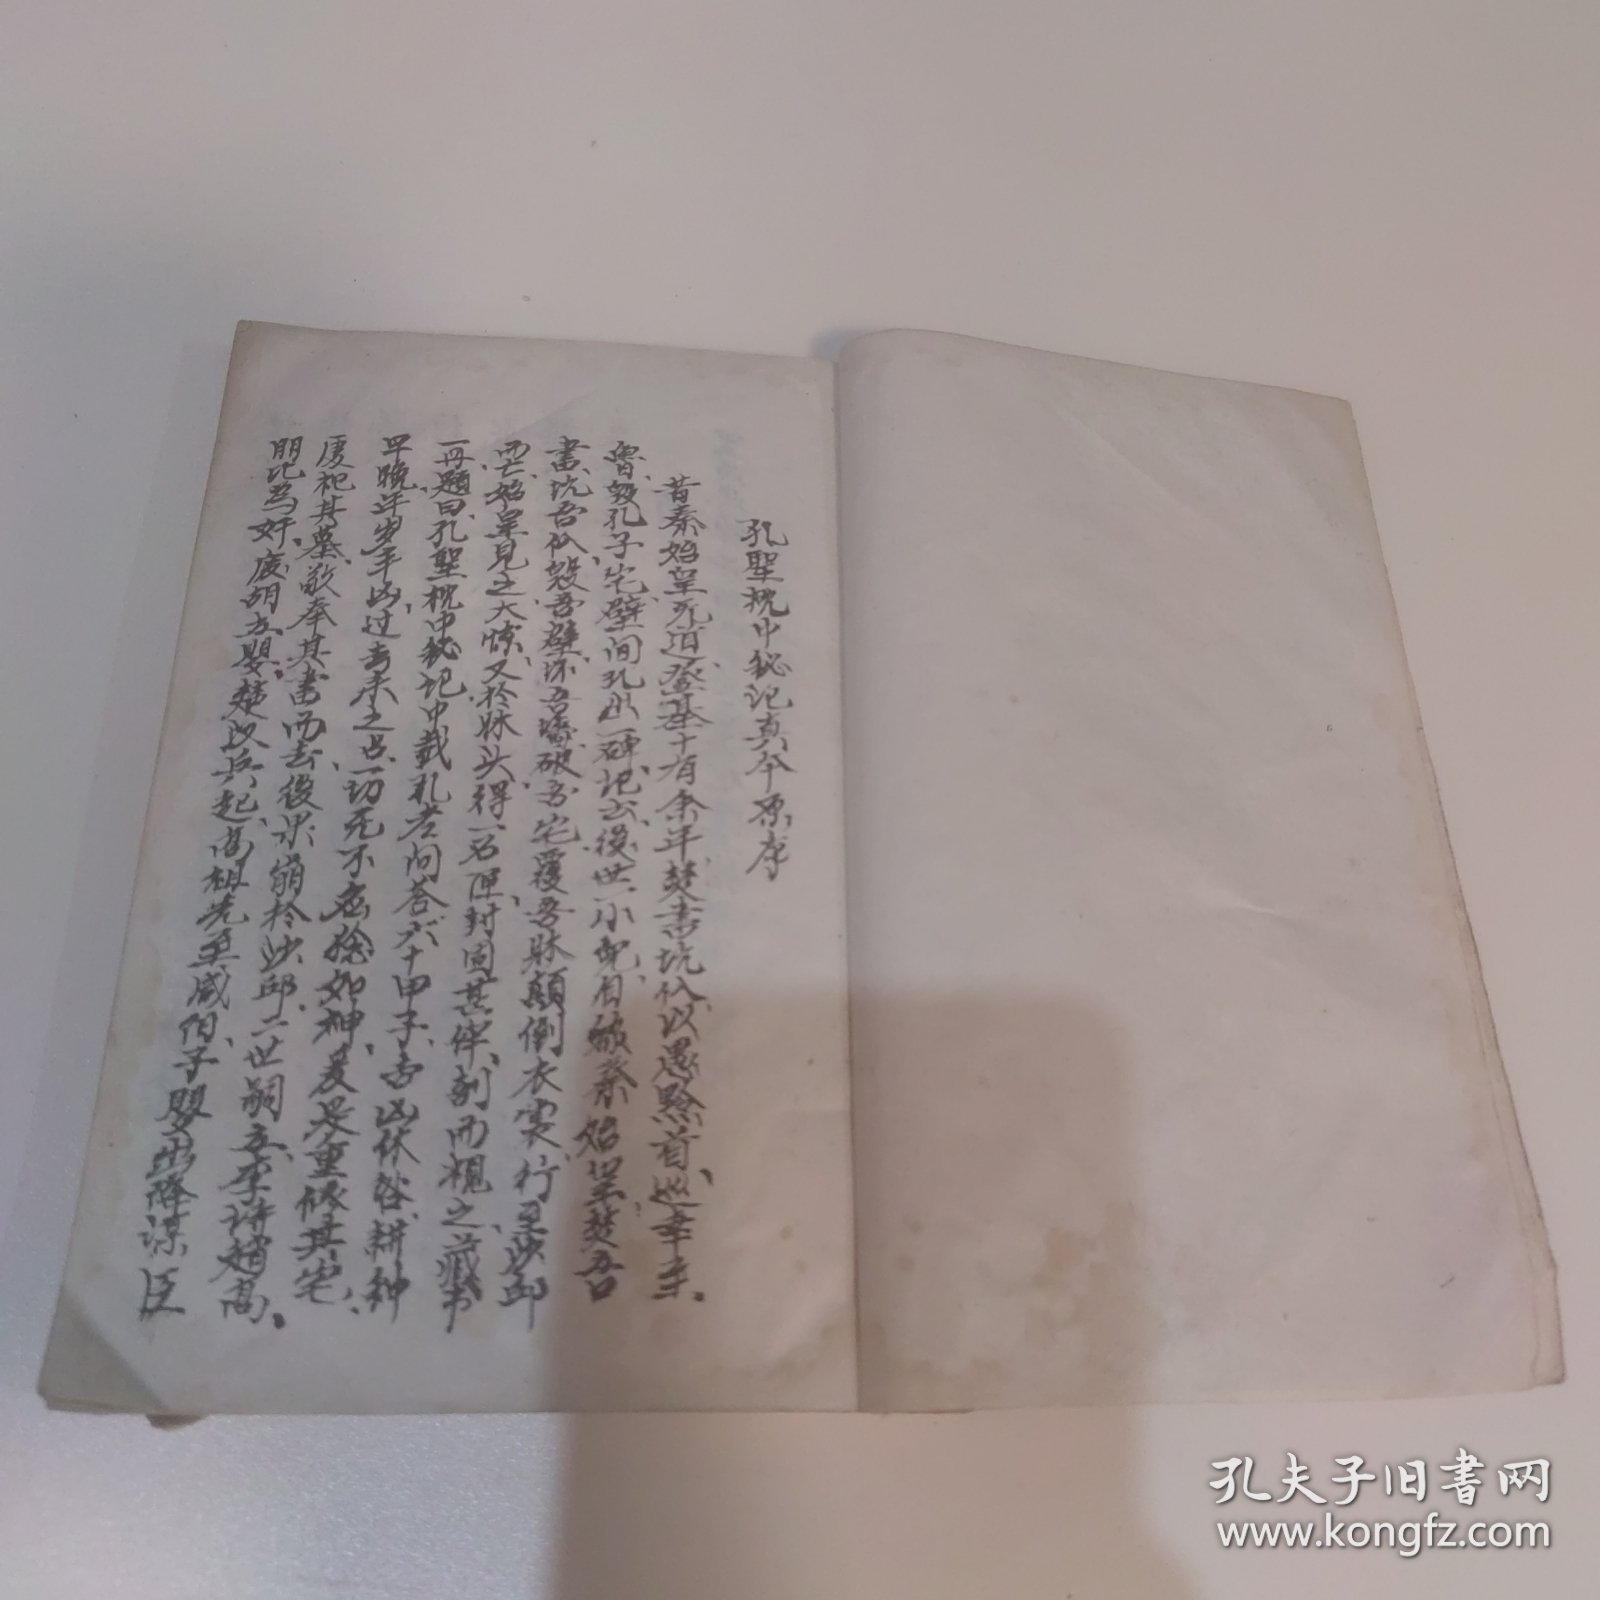 孔聖枕中秘記真本原序
昔秦始皇无道登基十有余年焚書坑仏以愚黔首巡幸至
魯毀孔子宅壁间孔出一碑记云後世一小兒自餙秦始皇焚吾
書坑吾仏毀吾壁坏吾墻破吾宅覆吾牀顛倒衣裳行至沙邱
而亡始皇見之大惊又於牀头得一石匣封固甚牢剖而視之藏书
一冊題曰孔聖枕中秘记中载孔老问答六十甲子吉凶休咎耕种
早晚年岁丰凶过去未来之占一切无不应騐如神爰是重修其宅
厚祀其墓敬奉其書而去後果崩於沙邱二世嗣立李诗趙高
朋比為奸废胡立嬰楚汉兵起高祖先至咸阳子嬰出降谋臣
孔夫子旧書网
www.kongfz.com